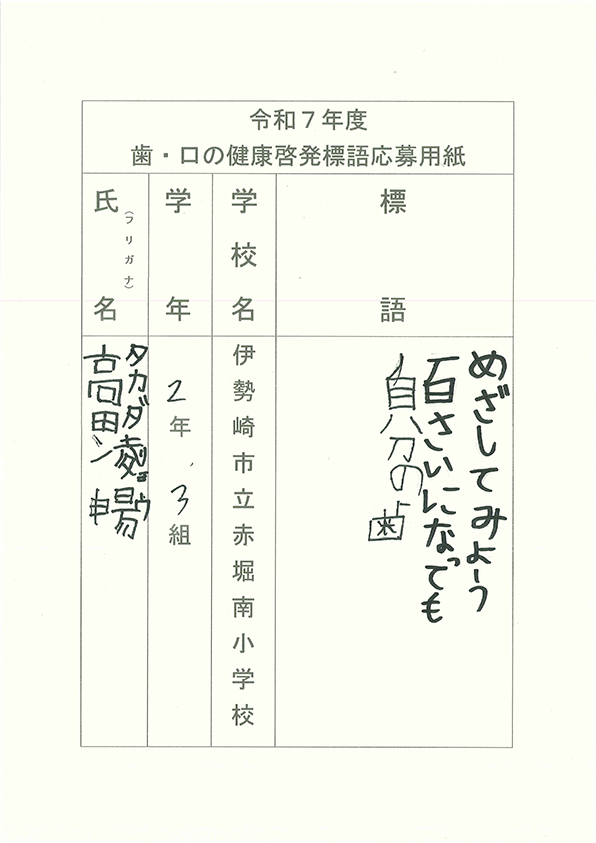 令和7年度
歯・口の健康啓発標語応募用紙
標語
めざしてみよう
百さいになっても
自分の歯
学校名
伊勢崎市立赤堀南小学校
学年
2年3組
氏名(フリガナ)
タカダ リョウ
高田 凌暢